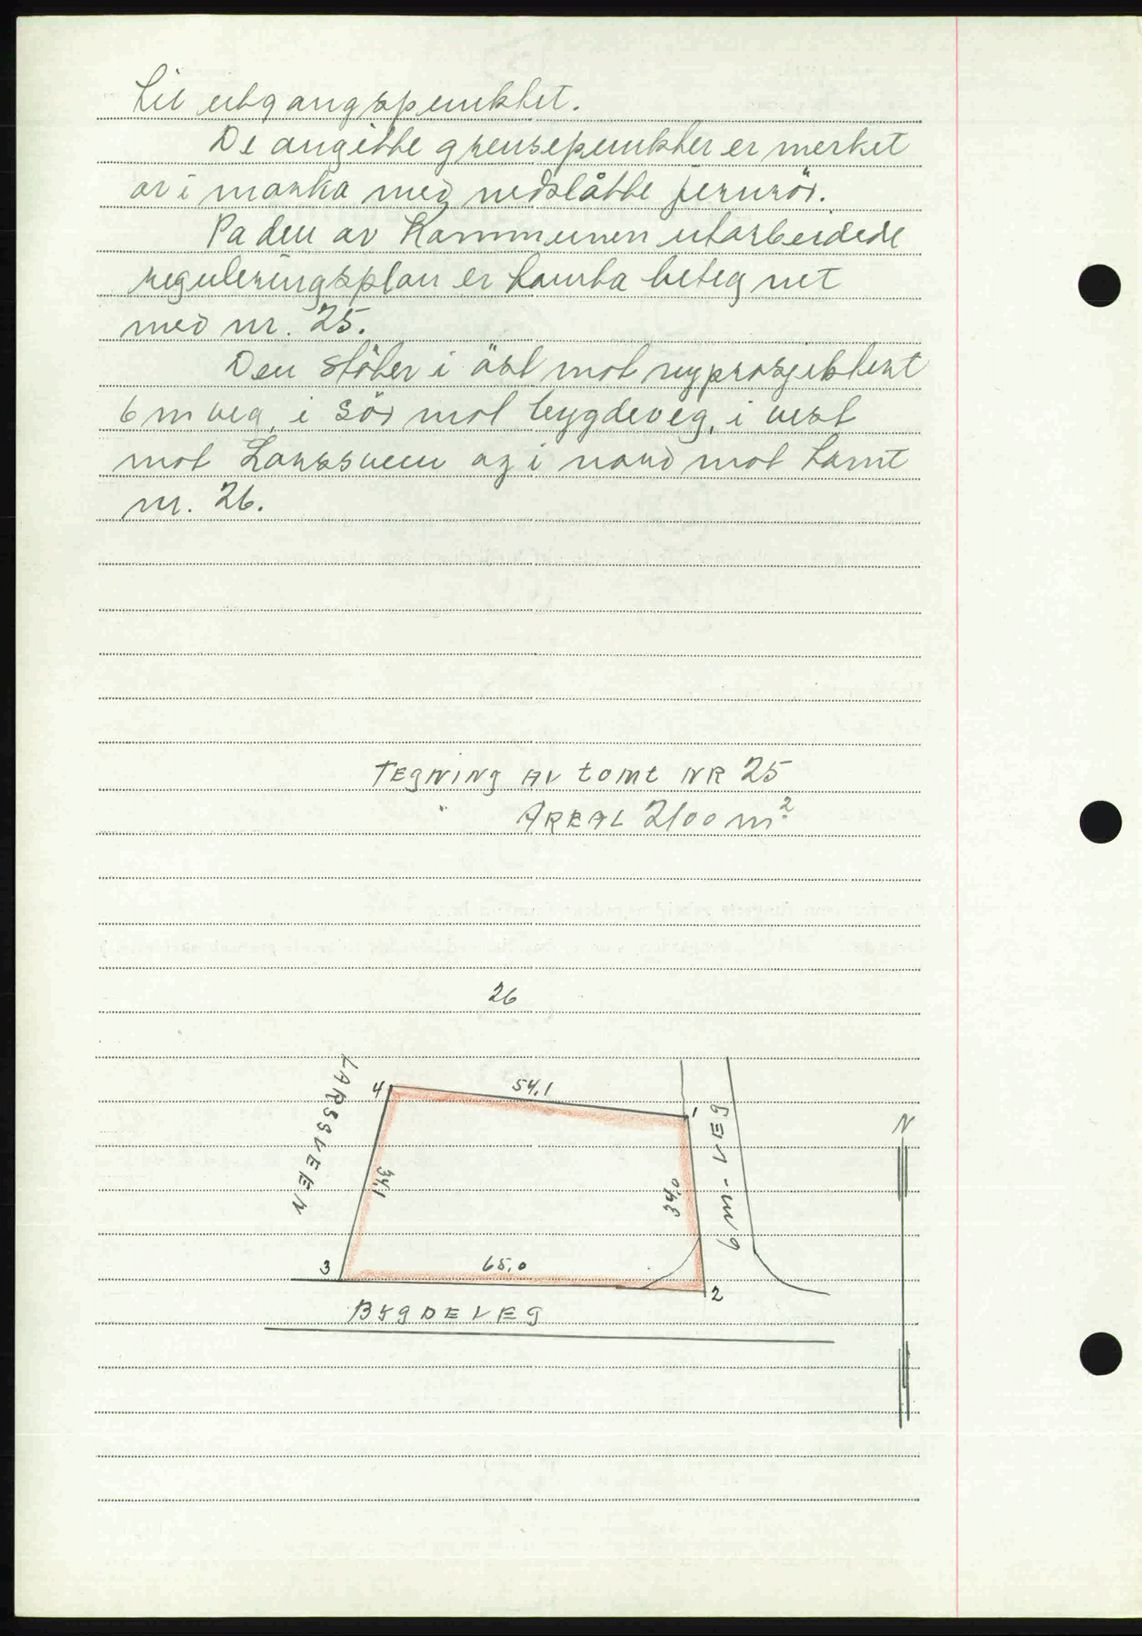 til utgangspunktet.
De angitte grensepunkter er merket
av i marka med nedslåtte jernrör.
På den av Kommunen utarbeidede
reguleringsplan er tomta betegnet
med nr. 25.
Den stöter i öst mot nyprosjektert
6 m veg, i Sör mot bygdeveg, i vest
mot Larssveen og i nord mot tomt
nr. 26.
TEGNING AV tomt NR 25
" AREAL 2100 m²
26
LARSSVEEN
4
54,1
1
6 m - VEG
N
34,1
34,0
3
65,0
2
BYGDEVEG